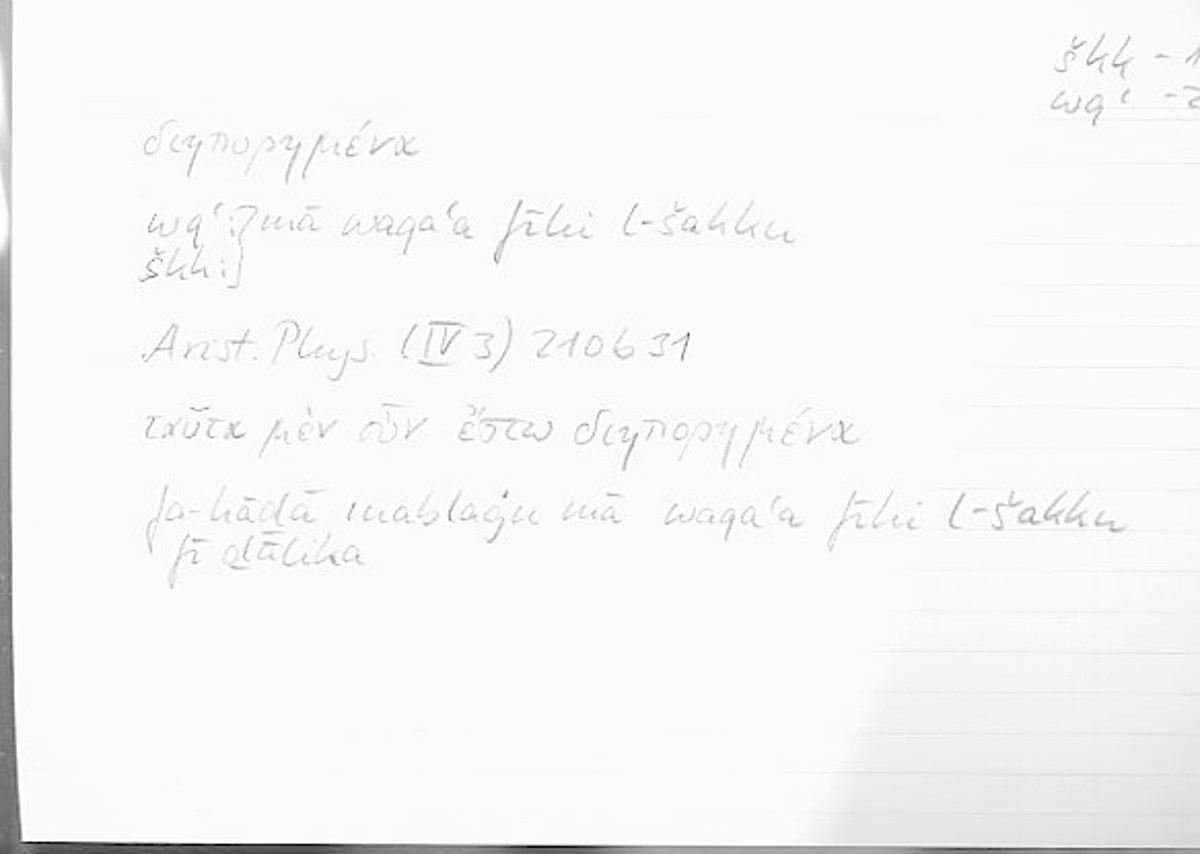 škk - 1
wqʿ - 2
διηπορημένα
wqʿ:} mā waqaʿa fīhi l-šakku
škk:}
Arist. Phys. (IV 3) 210b31
ταῦτα μὲν οὖν ἔστω διηπορημένα
fa-hāḏā mablaġu mā waqaʿa fīhi l-šakku
fī ḏālika